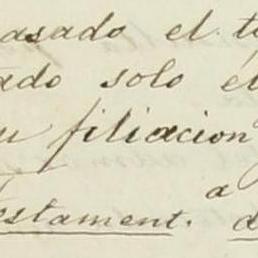 asado el t
ado solo el
u filiacion
estament.ᵃ d